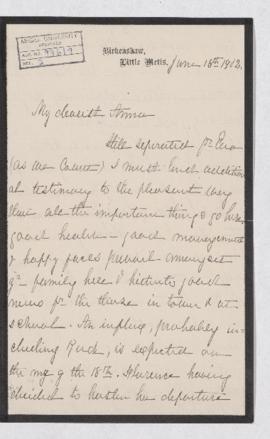 McGILL UNIVERSITY
Birkenshaw,
Little Metis, June 18th 1912.
My dearest Anna
Still separated for Eva
(as we Count) I must lend addition
al testimony to the pleasant way
that all the important things go here
good health - good management
& happy faces prevail amongst
family here & hitherto good
news for the those in town & at
school. An influx, probably in-
cluding Ruck, is expected on
the mg of the 18th. Florence having
decided to hasten her departure